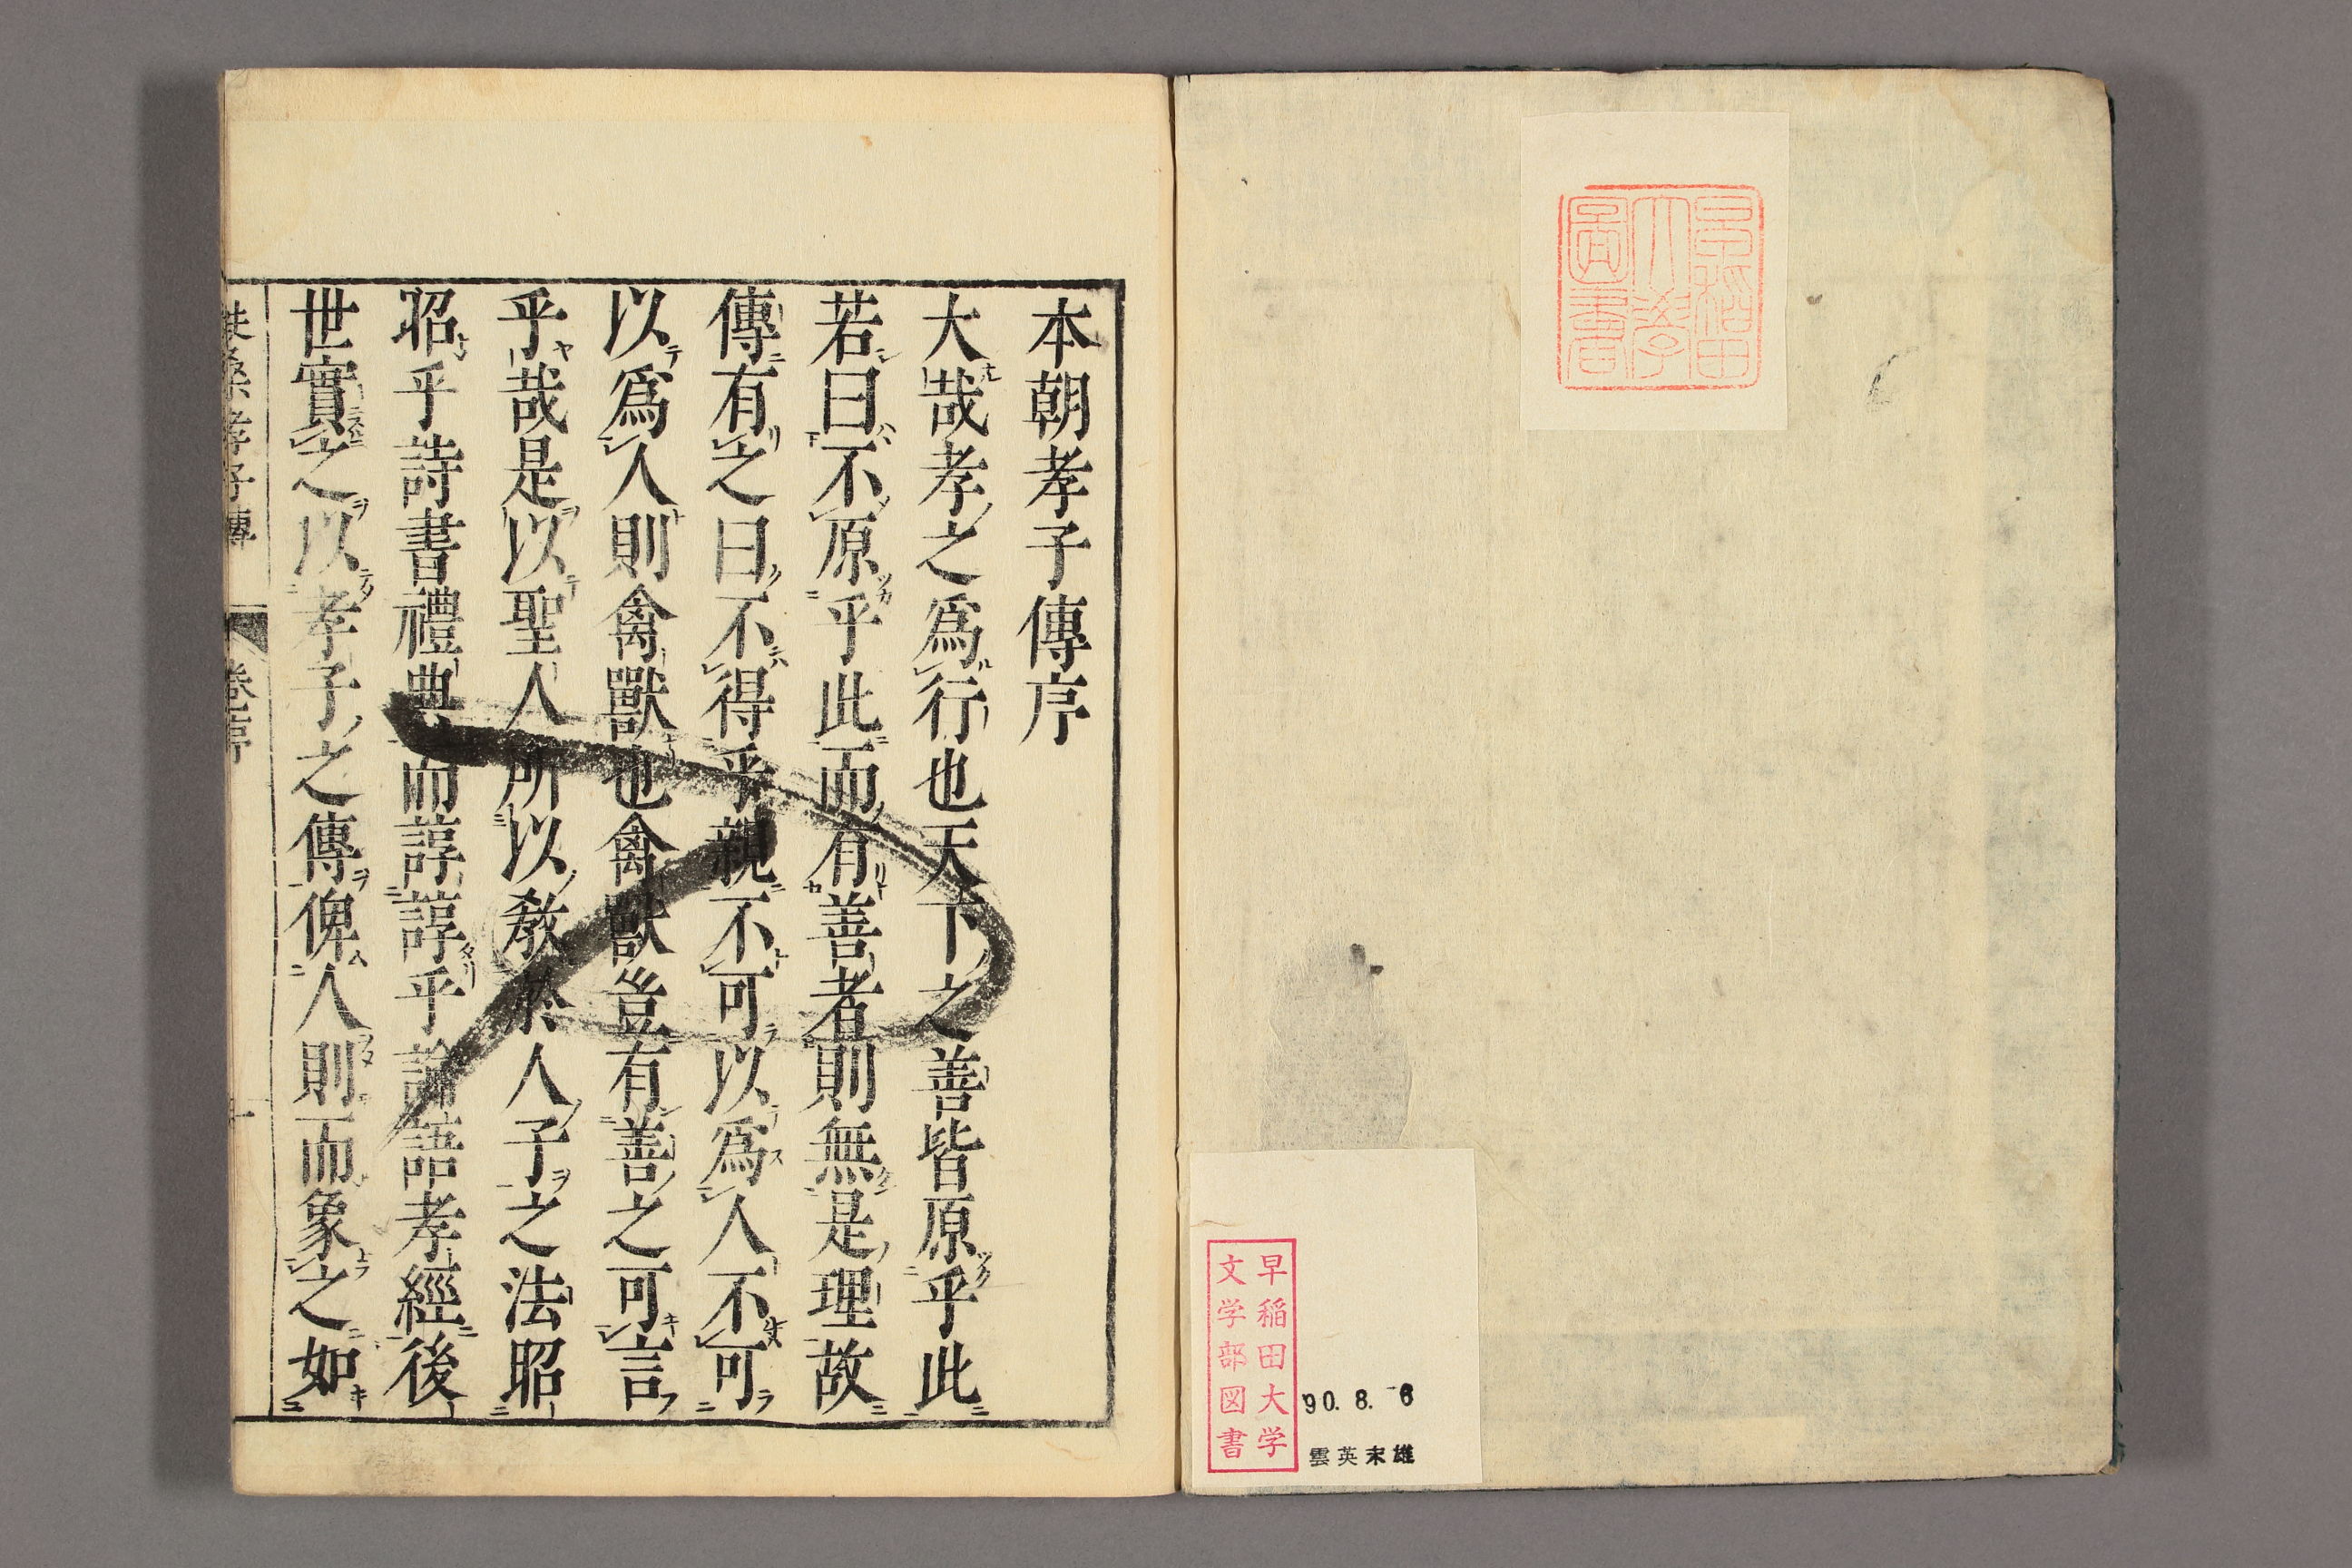 早稲田
大學
圖書
早稲田大学
文学部図書
'90. 8. -6
雲英末雄
本朝孝子傳序
大哉孝之爲行也天下之善皆原乎此
若曰不原乎此而有善者則無是理故
傳有之曰不得乎親不可以爲人不可
以爲人則禽獸也禽獸豈有善之可言
乎哉是以聖人所以敎於人子之法昭
昭乎詩書禮典而諄諄乎論語孝經後
世實之以孝子之傳俾人則而象之如
扶桑孝子傳 卷序 一